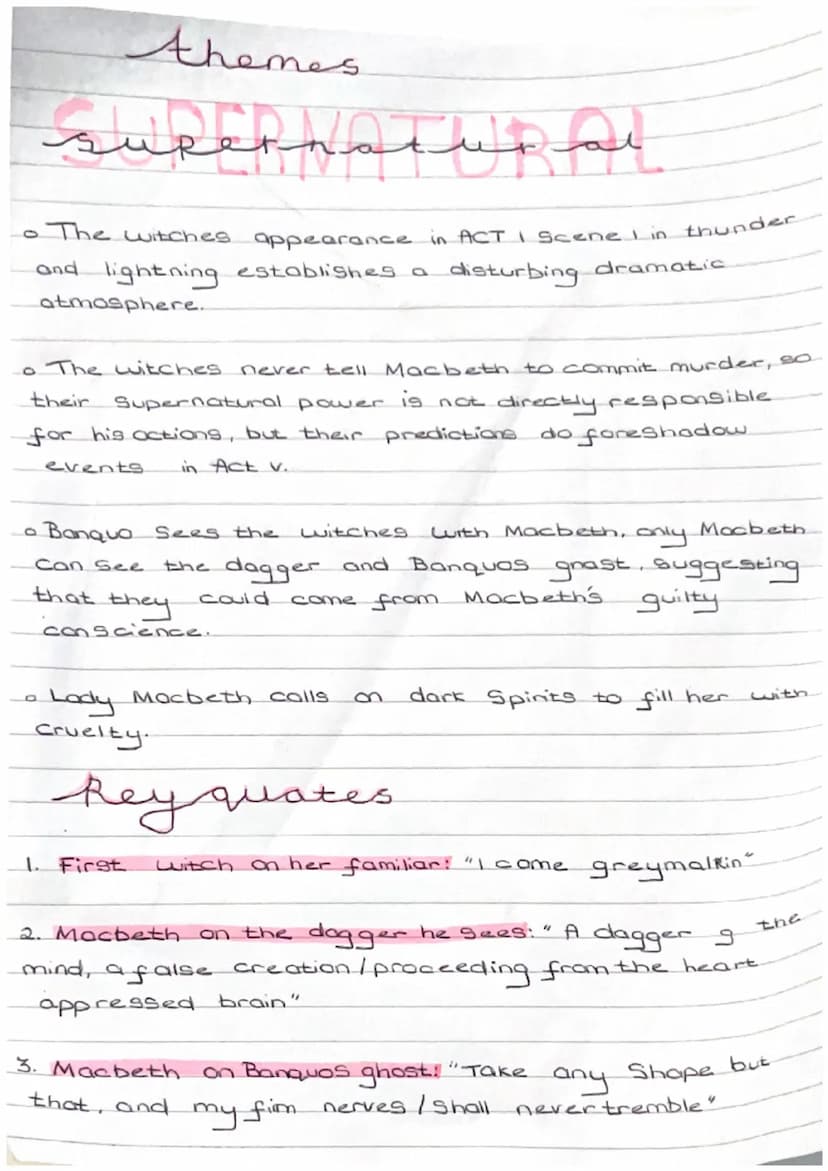 themes
SUPERNATURAL
supernatural
The witches appearance in ACT 1 Scene 1 in thunder
and lightning establishes a disturbing dramatic
atmosphere.
The witches never tell Macbeth to commit murder, so
their supernatural power is not directly responsible
for his actions, but their predictions do foreshadow
events in Act V.
Banquo sees the witches with Macbeth, only Macbeth
can see the dagger and Banquos ghost, suggesting
that they could come from Macbeth's guilty
conscience.
Lady Macbeth calls on dark Spirits to fill her with
cruelty.
Key quotes
1. First witch on her familiar: "I come greymalkin"
2. Macbeth on the dagger he sees: "A dagger of the
mind, a false creation / proceeding from the heart
oppressed brain"
3. Macbeth on Banquos ghost: "Take any Shape but
that, and my fim nerves / Shall never tremble"